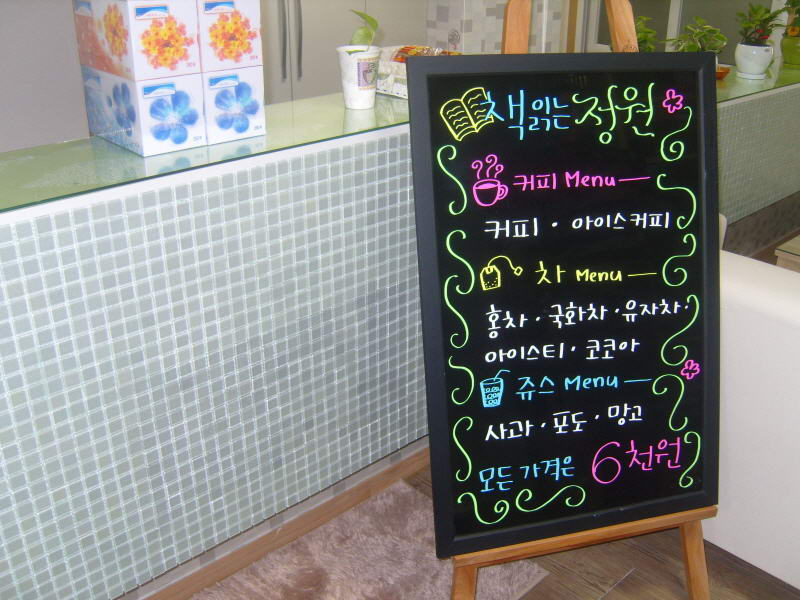 책읽는 정원
커피 Menu
커피 · 아이스커피
차 Menu
홍차 · 국화차 · 유자차 ·
아이스티 · 코코아
쥬스 Menu
사과 · 포도 · 망고
모든 가격은 6천원